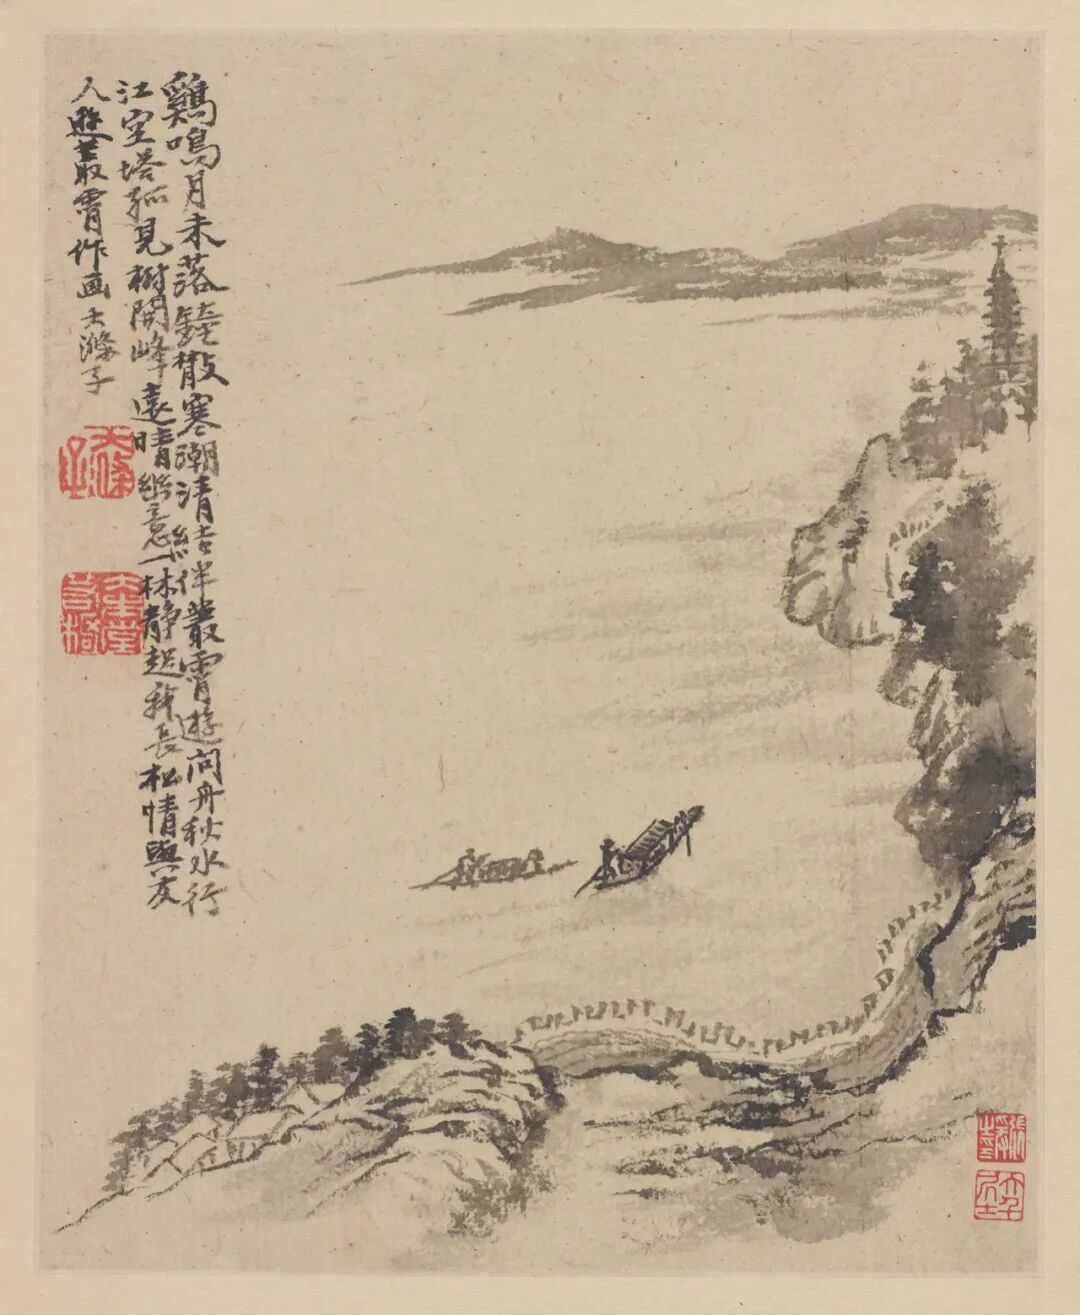 鷄鳴月未落鐘散寒潮清去伴叢霄遊問舟秋水行
江空塔孤見樹開峰遠晴幽意一林靜超我長松情與友
人遊叢霄作画大滌子
張爰之印